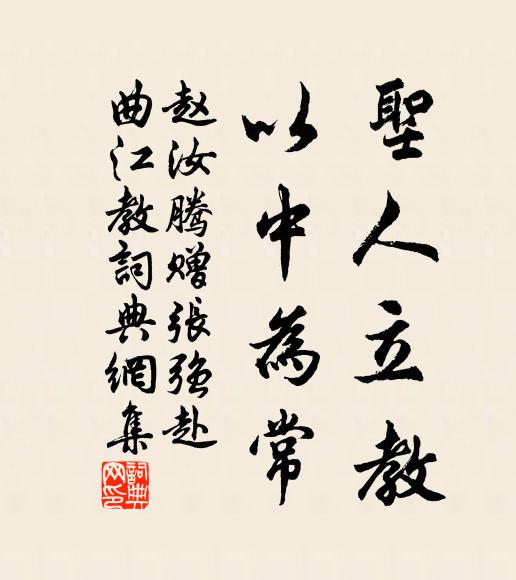 聖人立教
以中為常
赵汝騰赠張强赴
曲江教詞典網集
詞典網印